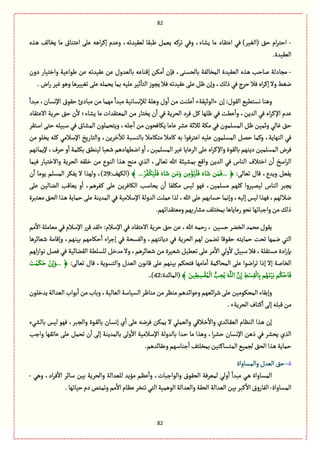 82
- احترام حق (الغير) في اعتقاد ما يشاء، وفي تركه يعمل طبقا لعقيدته، وعدم إكراهه على اعتناق ما يخالف هذه
العقيدة.
- مجادلة صاحب هذه العقيدة المخالفة بالحسنى، فإن أمكن إقناعه بالعدول عن عقيدته عن طواعية واختيار دون
ضغط ولا إكراه فلا حرج في ذلك، وإن ظل على عقيدته فلا يجوز التأثير عليه بما يحمله على تغييرها وهو غير راض .
وهنا نستطيع القول: إن «الوثيقة» أعلنت من أول وهلة للإنسانية مبدأ مهما من مبادئ حقوق الإنسان، مبدأ
عدم الإكراه في الدين، وأعطت في ظلها كل فرد الحرية في أن يختار من المعتقدات ما يشاء؛ لأن حق حرية الاعتقاد
حق غالي وثمين ظل المسلمون في مكة ثلاثة عشر عاما يكافحون من أجله، ويتحملون المشاق في سبيله حتى استقر
في النهاية، وكما حصل المسلمون عليه اعترفوا به كاملا متكاملا بالنسبة للآخرين، والتاريخ الإسلامي كله يخلو من
فرض المسلمين دينهم بالقوة والإكراه على الرعايا غير المسلمين، أو اضطهادهم شعبا لينطق بكلمة أو حرف، لإيمانهم
الراسخ أن اختلاف الناس في الدين واقع بمشيئة الله تعالى، الذي منح هذا النوع من خلقه الحرية والاختيار فيما
يفعل ويدع، قال تعالى: ﴿ ...فَمَن شَاءَ فَلْيُؤْمِن وَمَن شَاءَ فَلْيَكْفُرْ... ﴾ (الكهف:29)، ولهذا لا يفكر المسلم يوما أن
يجبر الناس ليصيروا كلهم مسلمين، فهو ليس مكلفا أن يحاسب الكافرين على كفرهم، أو يعاقب الضالين على
ضلالهم، فهذا ليس إليه، وإنما حسابهم على الله، لذا عملت الدولة الإسلامية في المدينة على حماية هذا الحق معتبرة
ذلك من واجباتها نحو رعاياها بمختلف مشاربهم ومعتقداتهم.
يقول محمد الخضر حسين، رحمه الله، عن حق حرية الاعتقاد في الإسلام: «لقد قرر الإسلام في معاملة الأمم
التي ضمها تحت حمايته حقوقا تضمن لهم الحرية في دياناتهم، والفسحة في إجراء أحكامهم بينهم، وإقامة شعائرها
بإرادة مستقلة، فلا سبيل لأولي الأمر على تعطيل شعيرة من شعائرهم، ولا مدخل للسلطة القضائية في فصل نوازلهم
الخاصة إلا إذا تراضوا على المحاكمة أمامها فتحكم بينهم على قانون العدل والتسوية، قال تعالى: ﴿ ...وَإِنْ حَكَمْتَ
فَاحْكُم بَيْنَهُم بِالْقِسْطِ إِنَّ اللَّهَ يُحِبُّ الْمُقْسِطِينَ ﴾ (المائدة:42).
وإبقاء المحكومين على شرائعهم وعوائدهم منظر من مناظر السياسة العالية، وباب من أبواب العدالة يدخلون
من قبله إلى أكناف الحرية» .
إن هذا النظام العقائدي والأخلاقي والعملي لا يمكن فرضه على أي إنسان بالقوة والجبر، فهو ليس بالشيء
الذي يحشر في ذهن الإنسان حشرا، وهذا ما حدا بالدولة الإسلامية الأولى بالمدينة إلى أن تحمل على عاتقها واجب
حماية هذا الحق لجميع المتساكنين بمختلف أجناسهم وعقائدهم.
4- حق العدل والمساواة
المساواة هي مبدأ أولي لمعرفة الحقوق والواجبات، وأعظم مؤيد للعدالة والحرية بين سائر الأفراد، وهي -
المساواة- الفاروق الأكبر بين العدالة الحقة والعدالة الوهمية التي تنخر عظام الأمم وتمتص دم حياتها .
82